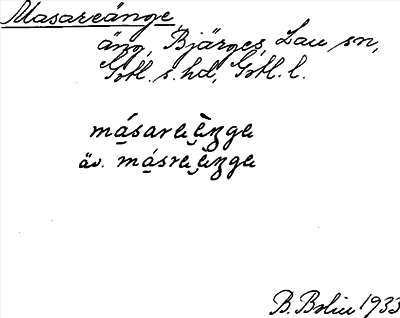 Masareänge,
äng, Bjärges, Lau sn,
Gotl. s. hd, Gotl. l.
másare ὲŋge
äv. másre ὲŋge
B. Bolin 1933